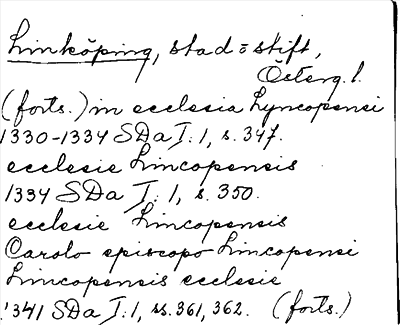 Linköping, stad o stift,
Österg. l.
(forts.) in ecclesia Lyncopensi
1330-1334 SDa I: 1, s. 347.
ecclesie Lincopensis
1334 SDa I: 1, s. 350.
ecclesie Lincopensis
Carolo episcopo Lincopensi
Lincopensis ecclesie
1341 SDa I: 1, ss. 361, 362. (forts.)